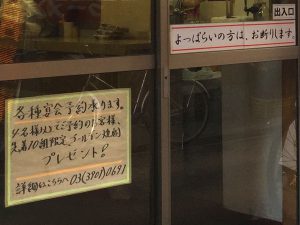 出入口
よっぱらいの方は、お断りします。
各種宴会予約承ります。
4名様以上でご予約のお客様、
先着10組限定
プレゼント!
詳細はこちらへ 03(3901)0691